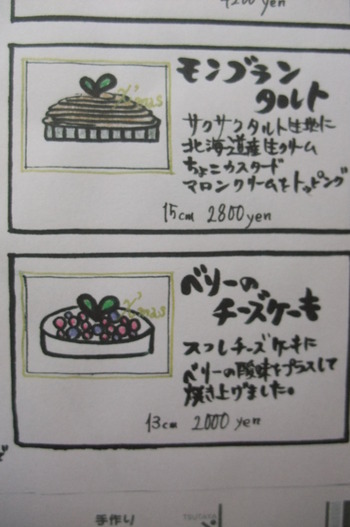 4200 yen
X'mas
モンブラン
タルト
サクサクタルト生地に
北海道産生クリーム
ちょこカスタード
マロンクリームをトッピング
15cm 2800yen
X'mas
ベリーの
チーズケーキ
スフレチーズケーキに
ベリーの酸味をプラスして
焼き上げました。
13cm 2000 yen
手作り
TSUTAYA